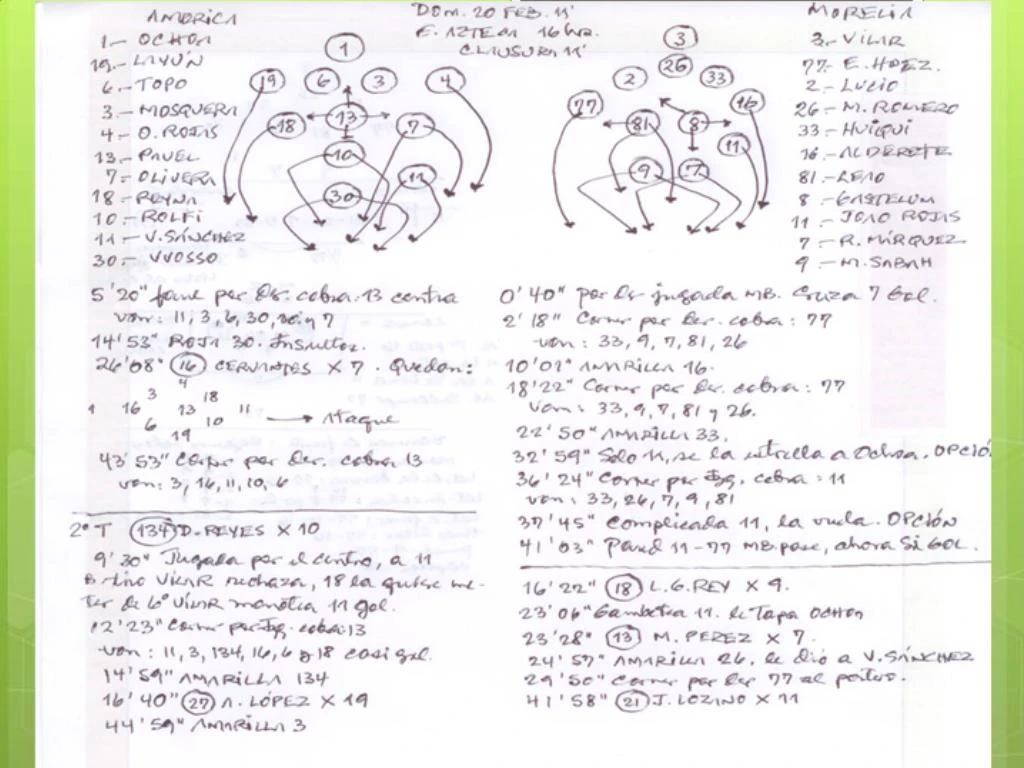 AMERICA
DOM. 20 FEB. 11'
E. AZTECA 16 hrs.
CLAUSURA 11'
MORELIA
1.- OCHOA
19.- LAYÚN
6.- TOPO
3.- MOSQUERA
4.- O. ROJAS
13.- PAVEL
7.- OLIVERA
18.- REYNA
10.- ROLFI
11.- V. SÁNCHEZ
30.- VUOSSO
1
19 6 3 4
18 13 7
10
11
30
3
26
2 33
77 16
81 8
11
9 7
3.- VILAR
77.- E. HDEZ.
2.- LUCIO
26.- M. ROMERO
33.- HUIQUI
16.- ALDERETE
81.- LEAO
8.- GASTELUM
11.- JOAO ROJAS
7.- R. MÁRQUEZ
9.- M. SABAH
5'20" por Der. cobra: 13 centra
van: 11, 3, 6, 30, y 7
14'53" ROJA 30. Insultos.
26'08" (16) CERVANTES X 7. Quedan:
3 4 18
1 16 13 11 → Ataque
6 10
19
43'53" Corner por Der. cobra 13
van: 3, 16, 11, 10, 6
2° T (134) D. REYES X 10
9'30" Jugada por el centro, a 11
B. tiro VILAR rechaza, 18 la quiere me-
ter de VILAR 11 gol.
12'23" Corner por Izq. cobra: 13
van: 11, 3, 134, 16, 6 y 18 casi gol.
14'59" AMARILLA 134
16'40" (27) A. LÓPEZ X 19
44'59" AMARILLA 3
0'40" por Der jugada MB. Cruza 7 Gol.
2'18" Corner por Der. cobra: 77
van: 33, 9, 7, 81, 26
10'01" AMARILLA 16.
18'22" Corner por Der. cobra: 77
van: 33, 9, 7, 81 y 26.
22'50" AMARILLA 33.
32'59" Solo 11, se la estrella a Ochoa. OPCIÓ
36'24" Corner por Izq. cobra: 11
van: 33, 26, 7, 9, 81
37'45" Complicada 11, la vuela. OPCIÓN
41'03" Pared 11-77 MB pase, ahora Si GOL.
16'22" (18) L.G. REY X 9.
23'06" Gambetea 11. le Tapa OCHOA
23'28" (13) M. PEREZ X 7.
24'57" AMARILLA 26. le dió a V. SÁNCHEZ
29'50" Corner por Der 77 al portero.
41'58" (21) J. LOZANO X 11